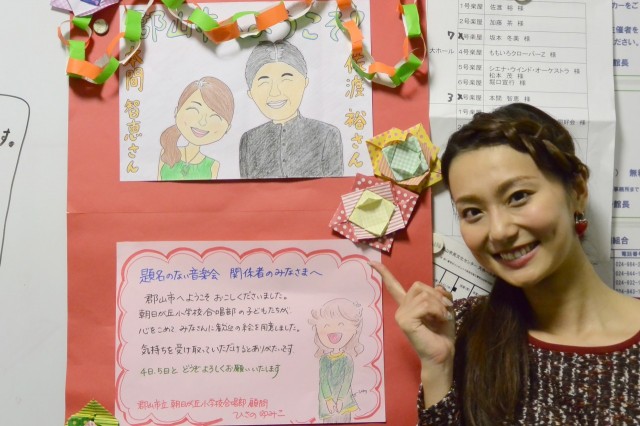 郡山市へようこそ!
本間智恵さん
佐渡裕さん
題名のない音楽会 関係者のみなさまへ
郡山市へようこそ おこしくださいました。
朝日が丘小学校合唱部の子どもたちが、
心をこめて みなさんに歓迎の絵を用意しました。
気持ちを受け取っていただけるとありがたいです
4日、5日と どうぞよろしくお願いいたします
郡山市立 朝日が丘小学校合唱部 顧問
す。
1号楽屋 佐渡 裕 様
2号楽屋 加藤 茶 様
3号楽屋 坂本 冬美 様
大ホール
4号楽屋 ももいろクローバーZ 様
5号楽屋 シエナ・ウインド・オーケストラ 様
松本 茂 様
6号楽屋 堀口宣行 様
本間 智恵 様
館長
館長
組合
電話番号